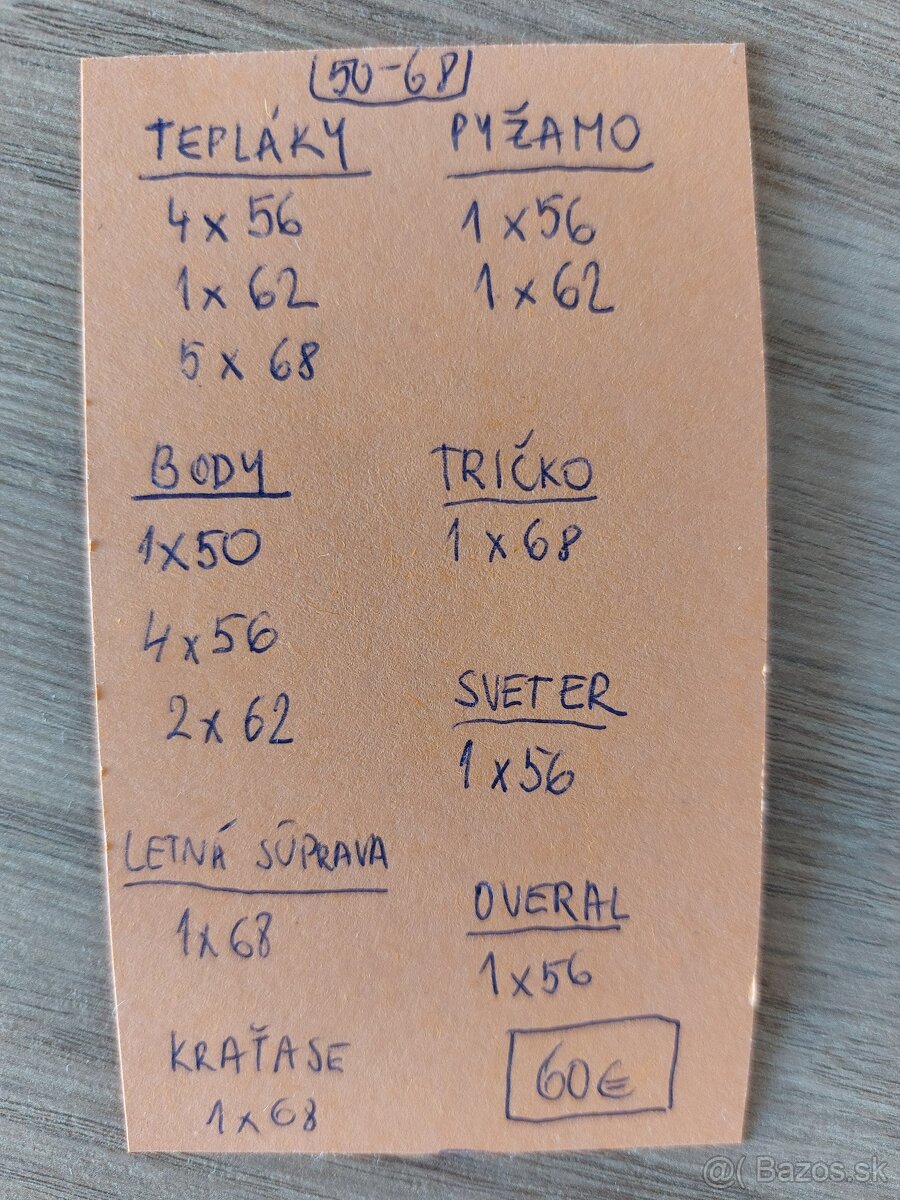 50-68
TEPLÁKY
4 x 56
1 x 62
5 x 68
PYŽAMO
1 x 56
1 x 62
BODY
1x50
4 x 56
2 x 62
TRIČKO
1 x 68
SVETER
1 x 56
LETNÁ SÚPRAVA
1x68
OVERAL
1x56
KRAŤASE
1 x 68
60€
@( Bazos.sk